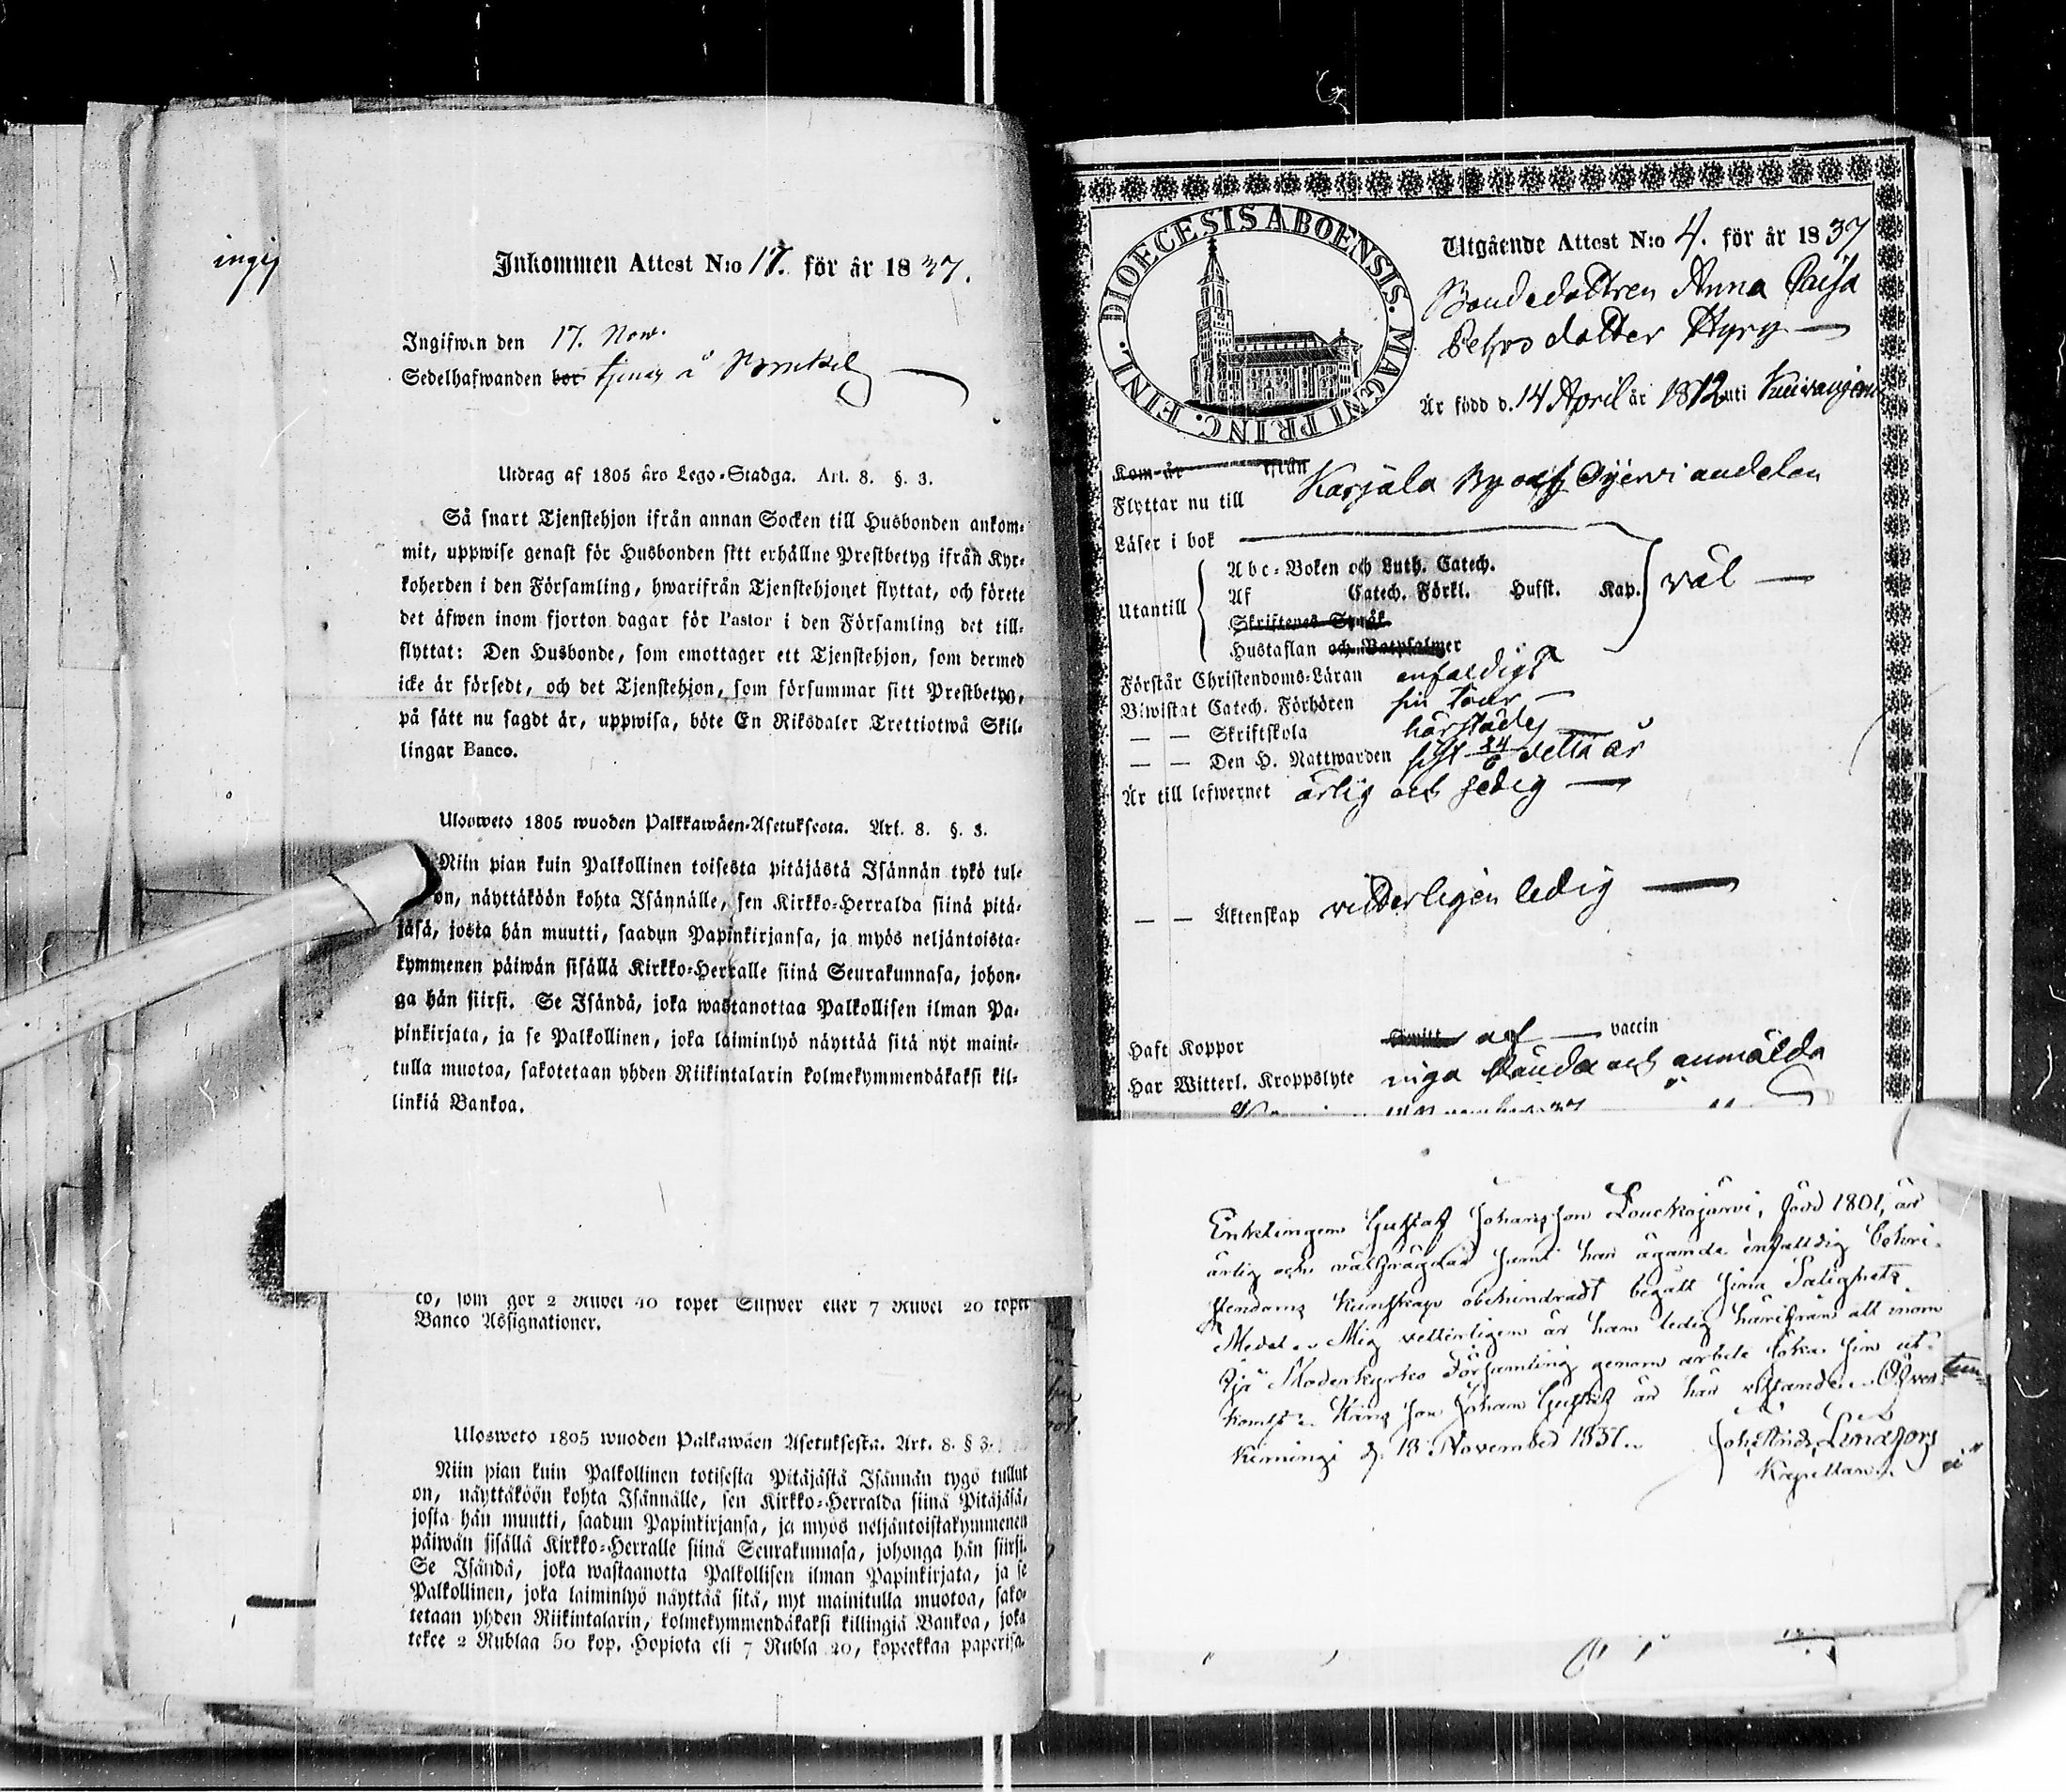 ingif
Inkommen Attest N:o 17. för år 1837.
Ingifwen den 17. Nov.
Sedelhafwanden bor tjenar å
Utdrag af 1805 års Lego-Stadga. Art. 8. §. 3.
Så snart Tjenstehjon ifrån annan Socken till Husbonden ankom-
mit, uppwise genast för Husbonden sitt erhållne Prestbetyg ifrån Kyr-
koherden i den Församling, hwarifrån Tjenstehjonet flyttat, och förete
det äfwen inom fjorton dagar för Pastor i den Församling det till-
flyttat: Den Husbonde, som emottager ett Tjenstehjon, som dermed
icke är försedt, och det Tjenstehjon, som försummar sitt Prestbetyg,
på sätt nu sagdt är, uppwisa, böte En Riksdaler Trettiotwå Skil-
lingar Banco.
Ulosweto 1805 wuoden Palkkawäen-Asetuksesta. Art. 8. §. 3.
Niin pian kuin Palkollinen toisesta pitäjästä Isännän tykö tul-
on, näyttäköön kohta Isännälle, sen Kirkko-Herralda siinä pitä-
jäsä, josta hän muutti, saadun Papinkirjansa, ja myös neljäntoista-
kymmenen päiwän sisällä Kirkko-Herralle siinä Seurakunnasa, johon-
ga hän siirsi. Se Isändä, joka wastanottaa Palkollisen ilman Pa-
pinkirjata, ja se Palkollinen, joka laiminlyö näyttää sitä nyt maini-
tulla muotoa, sakotetaan yhden Riikintalarin kolmekymmendäkaksi kil-
linkiä Bankoa.
co, som gör 2 Rubel 40 kopek Silfwer eller 7 Rubel 20 kopek
Banco Assignationer.
Ulosweto 1805 wuoden Palkawäen Asetuksesta. Art. 8. § 3.
Niin pian kuin Palkollinen totisesta Pitäjästä Isännän tygö tullut
on, näyttäköön kohta Isännälle, sen Kirkko-Herralda siinä Pitäjäsä,
josta hän muutti, saadun Papinkirjansa, ja myös neljäntoistakymmenen
päiwän sisällä Kirkko-Herralle siinä Seurakunnasa, johonga hän siirsi.
Se Isändä, joka wastaanotta Palkollisen ilman Papinkirjata, ja se
Palkollinen, joka laiminlyö näyttää sitä, nyt mainitulla muotoa, sako-
tetaan yhden Riikintalarin, kolmekymmendäkaksi killingiä Bankoa, joka
tekee 2 Rublaa 50 kop. Hopiota eli 7 Rubla 20, kopeekkaa paperisa.
DIOECESIS ABOENSIS. MAGNI PRINC. FINL.
Utgående Attest N:o 4. för år 1837
Bondedottren Anna Caisa
Pehrsdotter Hyry
Är född d. 14 April år 1812 uti Kuivaniemi
Kom år ifrån
Flyttar nu till Karjala By af Ojervi andelen
Läser i bok
Utantill
Abc-Boken och Luth. Catech.
Af Catech. Förkl. Husst. Kap. väl
Skriftenes Språk
Hustaflan och Botpsalmer
Förstår Christendoms-Läran enfaldigt
Biwistat Catech. Förhören sin tour
— — Skriftskola härstädes
— — Den H. Nattwarden sist 24/6 detta år
Är till lefwernet ärlig och sedig
— — Äktenskap vetterligen ledig
Haft Koppor Switt af vaccin
Har Witterl. Kroppslyte inga kända och anmälda
Enklingen Gustaf Johansson Louckajärvi, född 1801, är
ärlig och välfrägdad samt har ägande enfalldig Christen-
stendoms kunskap obehindradt begått sina Salighets
Medel. Mig vetterligen är han ledig härifrån att inom
Ijå Moderkyrko Församling genom arbete söka sin ut-
komst. Hans son Johan Gustaf är här vistande. Öfver-
Kiminge d. 13 November 1837.
Joh. Lindfors
Kapellan.